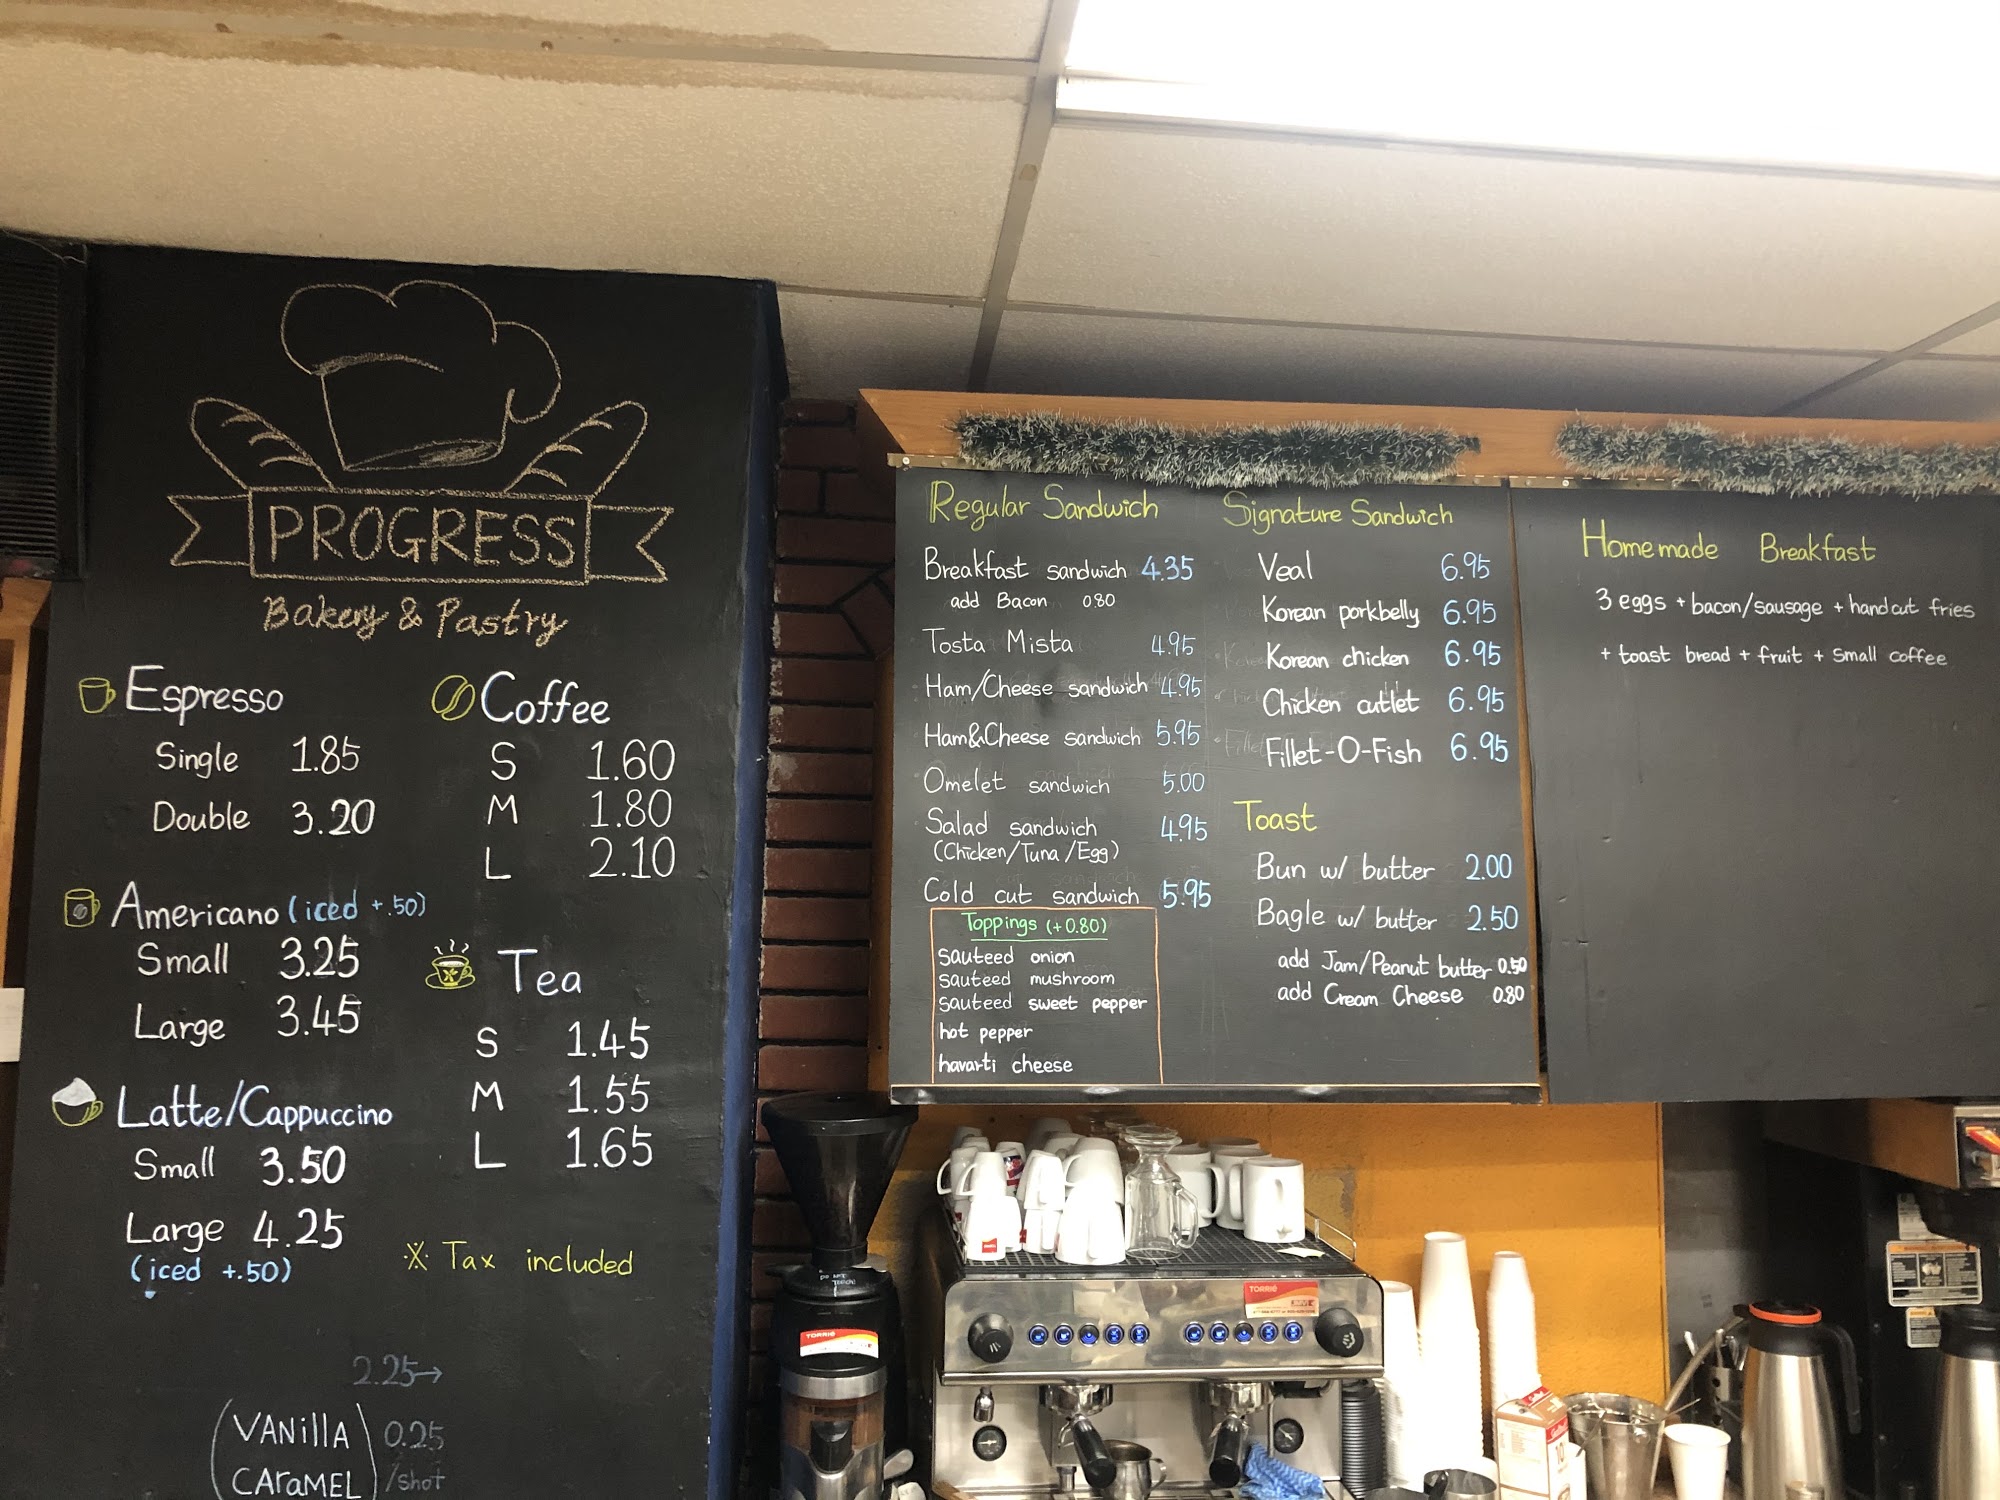 PROGRESS
Bakery & Pastry
Espresso
Single 1.85
Double 3.20
Americano (iced +.50)
Small 3.25
Large 3.45
Latte/Cappuccino
Small 3.50
Large 4.25
(iced +.50)
Coffee
S 1.60
M 1.80
L 2.10
Tea
S 1.45
M 1.55
L 1.65
※ Tax included
2.25→
VANillA 0.25
CArAMEL /shot
Regular Sandwich
Breakfast sandwich 4.35
add Bacon 0.80
Tosta Mista 4.95
Ham/Cheese sandwich 4.95
Ham&Cheese sandwich 5.95
Omelet sandwich 5.00
Salad sandwich 4.95
(Chicken/Tuna/Egg)
Cold cut sandwich 5.95
Toppings (+0.80)
sauteed onion
sauteed mushroom
sauteed sweet pepper
hot pepper
havarti cheese
Signature Sandwich
Veal 6.95
Korean porkbelly 6.95
Korean chicken 6.95
Chicken cutlet 6.95
Fillet-O-Fish 6.95
Toast
Bun w/ butter 2.00
Bagle w/ butter 2.50
add Jam/Peanut butter 0.50
add Cream Cheese 0.80
Homemade Breakfast
3 eggs + bacon/sausage + handcut fries
+ toast bread + fruit + small coffee
TORRIÉ
TORRIÉ